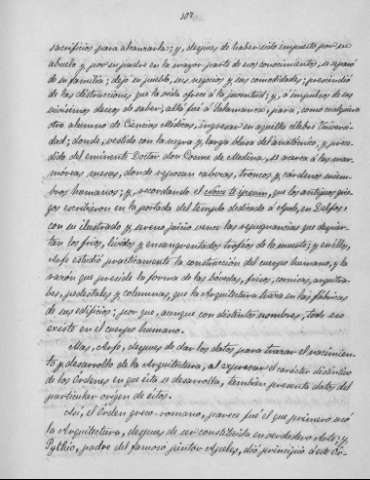 107.
sacrificios para alcanzarla; y, despues de haber sido impuesto por su
abuelo y por su padre en la mayor parte de esos conocimientos, se separó
de su familia; dejó su pueblo, sus negocios y sus comodidades; prescindió
de las distracciones que la vida ofrece á la juventud; y, á impulsos de sus
vivísimos deseos de saber, allá fué á Salamanca, para, como cualquiera
otro alumno de Ciencias Médicas, ingresar en aquella célebre Universi-
dad; donde, vestido con la negra y larga blusa del anatómico, y prece-
dido del eminente Doctor don Cosme de Medina, se acerca á las mar-
móreas mesas, donde reposan cabezas, troncos y cárdenos miem-
bros humanos; y, recordando el que los antiguos grie-
gos escribieron en la portada del templo dedicado á Apolo, en Delfos,
con su ilustrado y sereno juicio vence las repugnancias que despier-
tan los frios, lívidos y ensangrentados trofeos de la muerte; y en ellos,
Arfe estudió prácticamente la construcción del cuerpo humano, y la
razón que preside la forma de las bóvedas, frisos, cornisas, arquitra-
bes, pedestales y columnas, que la Arquitectura traza en las fábricas
de sus edificios; por que, aunque con distintos nombres, todo eso
existe en el cuerpo humano.
Mas, Arfe, despues de dar los datos para trazar el nacimien-
to y desarrollo de la Arquitectura, al expresar el carácter distintivo
de los Ordenes en que ésta se desarrolla, tambien presenta datos del
particular origen de éstos.
Así, el Orden greco-romano, parece fué el que primero usó
la Arquitectura, despues de ser constituida en verdadero Arte; y
Pythio, padre del famoso pintor Apeles, dió principio á este Or-